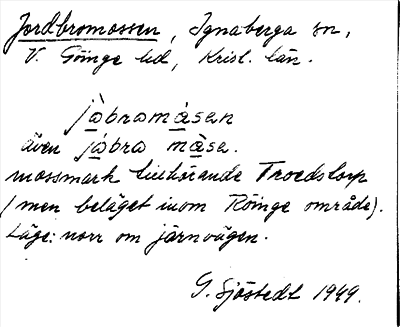 Jordbromossen, Ignaberga sn,
V. Göinge hd, Krist. län.
jàbramásen
även jábra màsa.
mossmark tillhörande Troedstorp
(men beläget inom Röinge område).
Läge: norr om järnvägen.
G. Sjöstedt 1949.